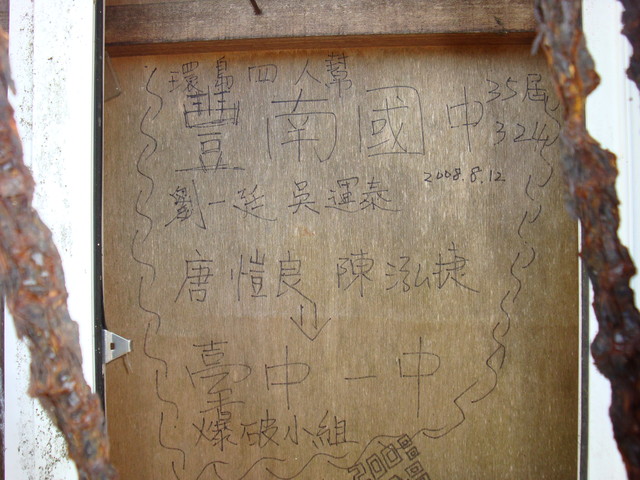 環島四人幫
豐南國中 35屆
324
2008.8.12
劉一廷 吳運泰
唐愷良 陳泓捷
臺中一中
爆破小組
200